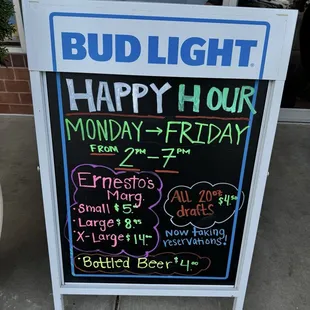 BUD LIGHT
HAPPY HOUR
MONDAY→FRIDAY
FROM 2PM-7PM
Ernesto's
Marg.
• Small $5.
• Large $8.95
• X-Large $14.
All 20oz
drafts $4.50
Now taking
reservations!
• Bottled Beer $4.00